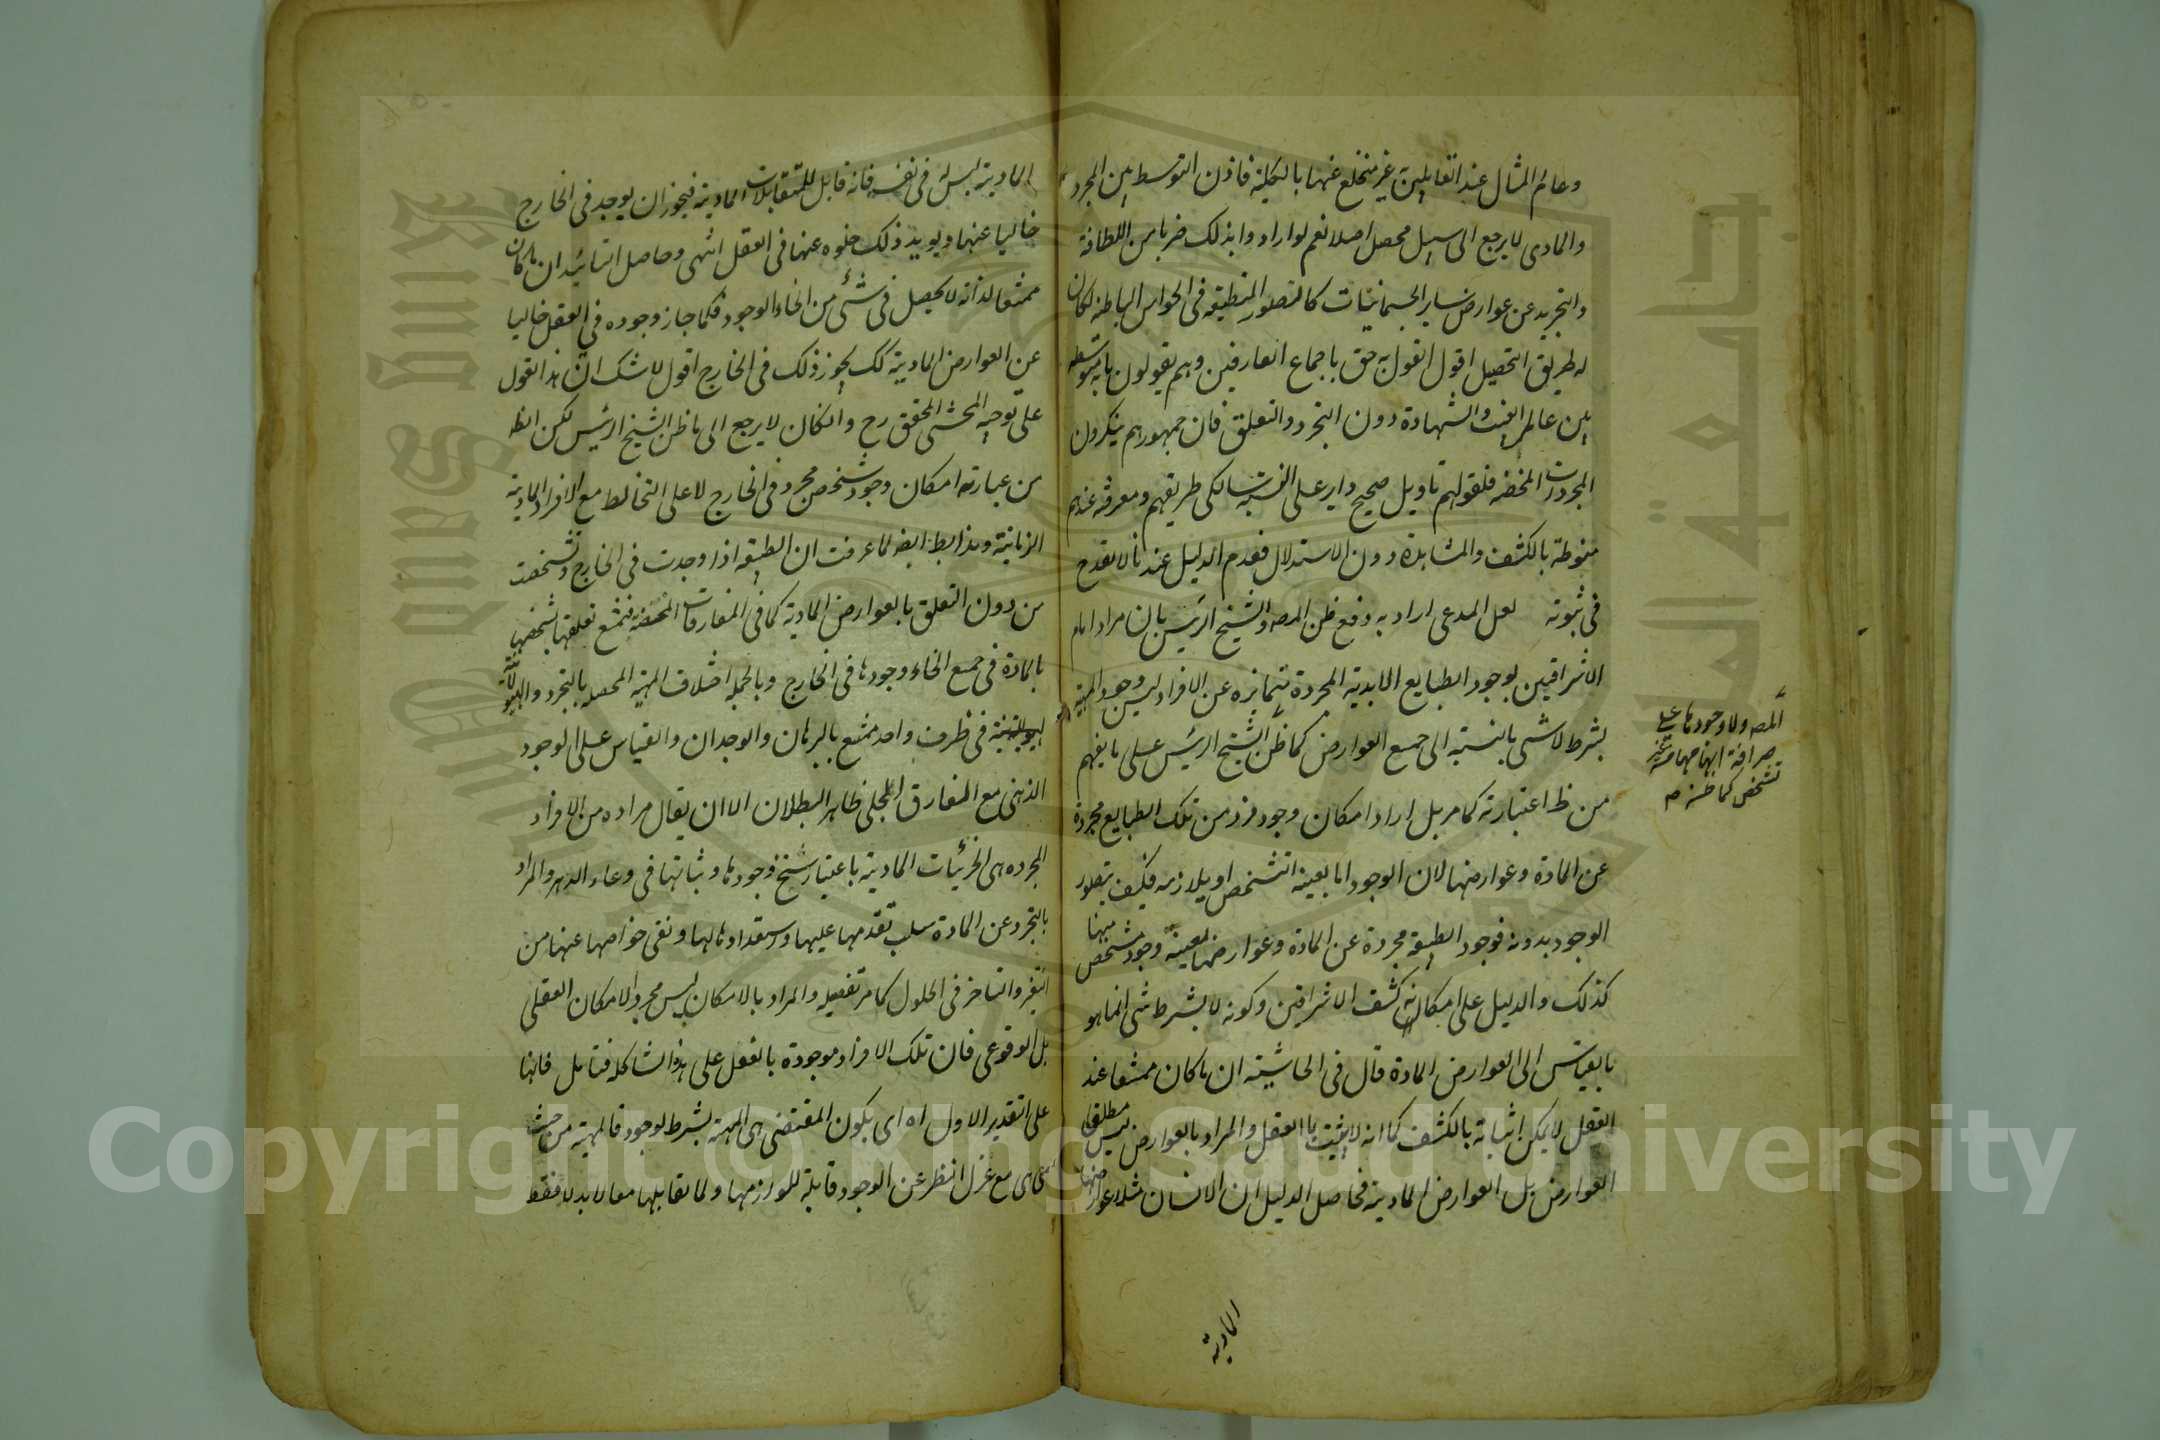 وعالم المثال عند القائلين به غير منخلع عنها بالكلية فاذن التوسط بين المجرد
والمادى لا يرجع الى سبيل محصل اصلا نعم لو ارادوا بذلك ضربا من اللطافة
والتجريد عن عوارض ساير الجسمانيات كالتصور المنطبقه فى الحواس الباطنه لكان
له طريق التحصيل اقول القول به حق باجماع العارفين وهم يقولون بانه متوسط
بين عالم الغيب والشهادة دون التجرد والتعلق فان جمهورهم ينكرون
المجردات المحضه فلقولهم تاويل صحيح داير على السنة سالكى طريقهم ومعرفته عندهم
منوطة بالكشف والمشاهدة دون الاستدلال فعدم الدليل عندنا لا يقدح
فى ثبوته لعل المدعى اراد به دفع ظن المصه والشيخ الرئيس بان مراد امام
الاشراقين بوجود الطبايع الابدية المجردة متمايزه عن الافراد ليس وجود المهية
بشرط لا شى بالنسبة الى جميع العوارض كما ظن الشيخ الرئيس على ما يفهم
من ظ اعتبارته كما مر بل اراد امكان وجود فرد من تلك الطبايع مجردة
عن المادة وعوارضها لان الوجود اما بعينه التشخص او يلازمه فكيف يتصور
الوجود بدونه فوجود الطبيعة مجردة عن المادة وعوارضها بعينه وجود شخص منها
كذلك والدليل على امكانه كشف الاشراقين وكونه لا بشرط شى انما هو
بالقياس الى العوارض المادة قال فى الحاشية ان ما كان ممتنعا عند
العقل لا يمكن اثباته بالكشف كما انه لا يثبت بالعقل والمراد بالعوارض ليس مطلقا
العوارض بل العوارض المادية فحاصل الدليل ان الانسان مثلا عوارضها
المادية
المصه ولا وجودها على
صرافة ابهامها من غير
تشخص كما ظنه صه
المادية ليس له فى نفسه فانه قابل للمتقابلات المادية فيجوز ان يوجد فى الخارج
خاليا عنها ويويد ذلك خلوه عنها فى العقل انتهى وحاصل التائيد ان ما كان
ممتنعا لذاته لا يحصل فى شئ من انحاء الوجود فكما جاز وجوده فى العقل خاليا
عن العوارض المادية كك يجوز ذلك فى الخارج اقول لا شك ان هذا القول
على توجيه المحشى المحقق رح وانكان لا يرجع الى ما ظن الشيخ الرئيس لكن الظ
من عبارته امكان وجود شخص مجرد فى الخارج لا على التخالط مع الافراد المادية
الزمانية وهذا بط ايضه لما عرفت ان الطبيعة اذا وجدت فى الخارج وتشخصت
من دون التعلق بالعوارض المادية كما فى المفارقات المحضه فيمتنع تعلقها بشخصها
بالمادة فى جميع انحاء وجودها فى الخارج وبالجمله اختلاف المهية المحصله بالتجرد والهيولانية
فى ظرف واحد ممتنع بالبرهان والوجدان والقياس على الوجود
الذهنى مع الفارق الجلى ظاهر البطلان الا ان يقال مراده من الافراد
المجرده هى الجزئيات المادية باعتبار سنخ وجودها وثباتها فى وعاء الدهر والمراد
بالتجرد عن المادة سلب تقدمها عليها واستعدادها لها ونفى خواصها عنها من
التغير والتاخر فى الحلول كما مر تفصيله والمراد بالامكان ليس مجرد الامكان العقلى
بل الوقوعى فان تلك الافراد موجودة بالفعل على هذه الشاكله فتامل فانها
على التقدير الاول اه اى بكون المقتضى هى المهية بشرط الوجود فالمهية من حيث
هى هى مع عزل النظر عن الوجود قابلة للوازمها ولما يقابلها معا لا بدلا فقط